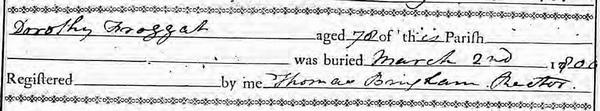 Dorothy Froggat aged 78 of this Parish
was buried March 2nd 1800
Registered by me Thomas Bingham Rector.